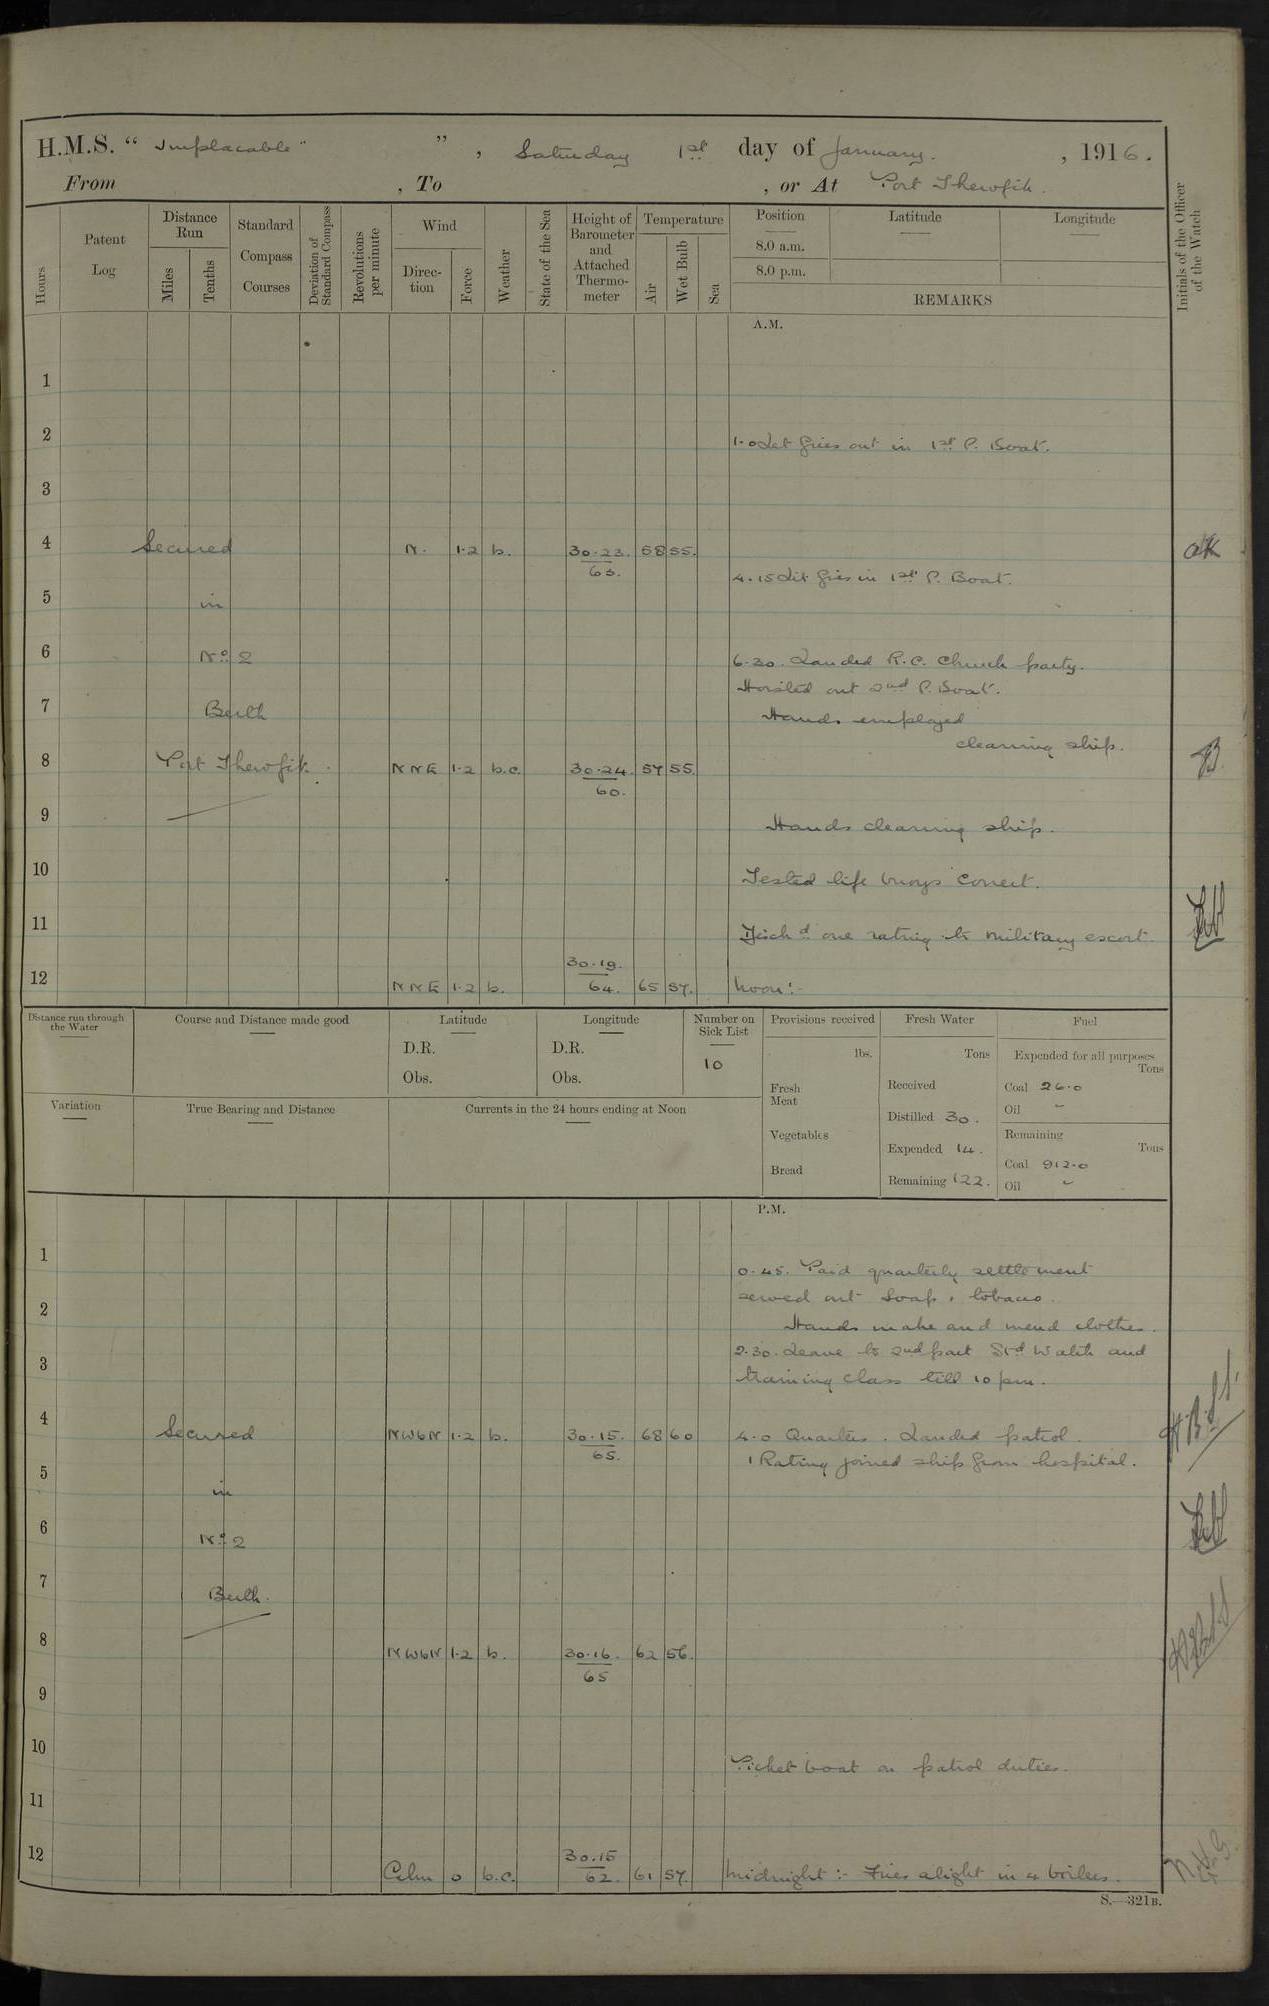 H.M.S. “ Implacable” ”, Saturday 1st day of January. , 1916.
From , To , or At Port Thewfik.
Hours
Patent Log
Distance Run
Miles
Tenths
Standard Compass Courses
Deviation of Standard Compass
Revolutions per minute
Wind
Direc-tion
Force
Weather
State of the Sea
Height of Barometer and Attached Thermo-meter
Temperature
Air
Wet Bulb
Sea
Position Latitude Longitude
8.0 a.m.
8.0 p.m.
REMARKS
Initials of the Officer of the Watch
A.M.
1
2 1.0 Let fires out in 1st P. Boat.
3
4 Secured N. 1.2 b. 30.23. 58 55.
63.
4.15 Lit fires in 1st P. Boat.
5 in
6 No 2 6.30. Landed R.C. Church party.
Hoisted out 2nd P. Boat.
7 Berth Hands employed
cleaning ship.
8 Port Thewfik. NNE 1.2 b.c. 30.24. 57 55.
60.
9 Hands cleaning ship.
10 Tested life buoys correct.
11 Disch'd one rating to military escort.
30.19.
12 NNE 1.2 b. 64. 65 57. Noon:-
Distance run through the Water
Course and Distance made good
Latitude
D.R.
Obs.
Longitude
D.R.
Obs.
Number on Sick List
10
Provisions received
lbs.
Fresh Meat
Vegetables
Bread
Fresh Water
Tons
Received
Distilled 30.
Expended 14.
Remaining 122.
Fuel
Expended for all purposes
Tons
Coal 26.0
Oil -
Remaining
Tons
Coal 912.0
Oil -
Variation
True Bearing and Distance
Currents in the 24 hours ending at Noon
P.M.
1 0.45. Paid quarterly settlement
served out soap & tobacco.
2 Hands make and mend clothes.
2.30. Leave to 2nd part Stbd Watch and
3 training class till 10 pm.
4 Secured NWbN 1.2 b. 30.15. 68 60 4.0 Quarters. Landed patrol.
65.
1 Rating joined ship from hospital.
5 in
6 No 2
7 Berth.
8 NWbN 1.2 b. 30.16. 62 56.
65
9
10 Picket boat on patrol duties.
11
30.15
12 Calm 0 b.c. 62. 61 57. Midnight:- Fires alight in 4 boilers.
S.—321B.